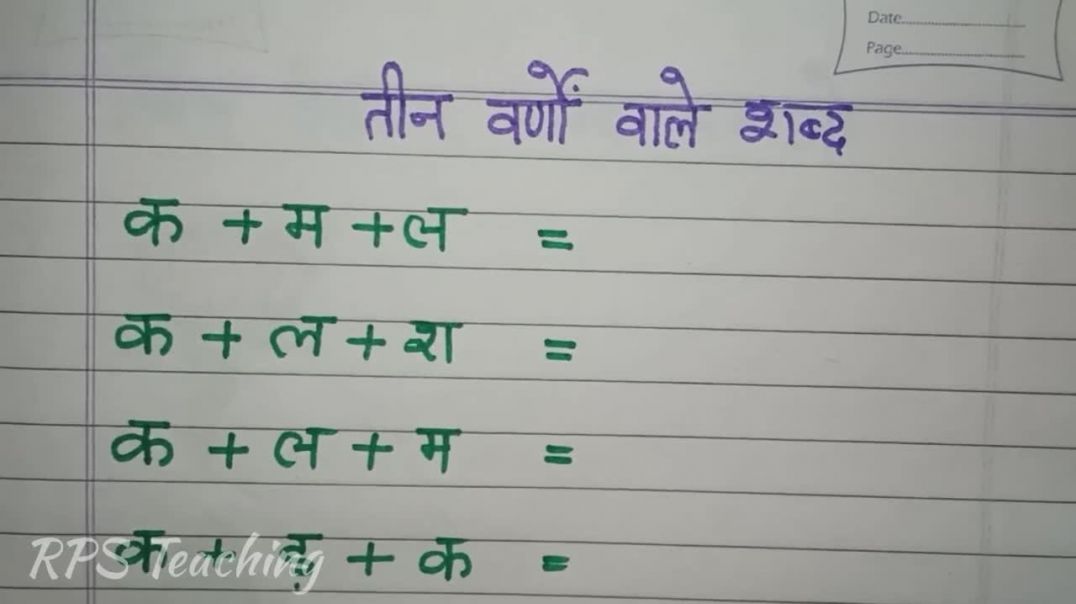 Date
Page
तीन वर्णों वाले शब्द
क + म + ल =
क + ल + श =
क + ल + म =
क + ड़ + क =
RPS Teaching